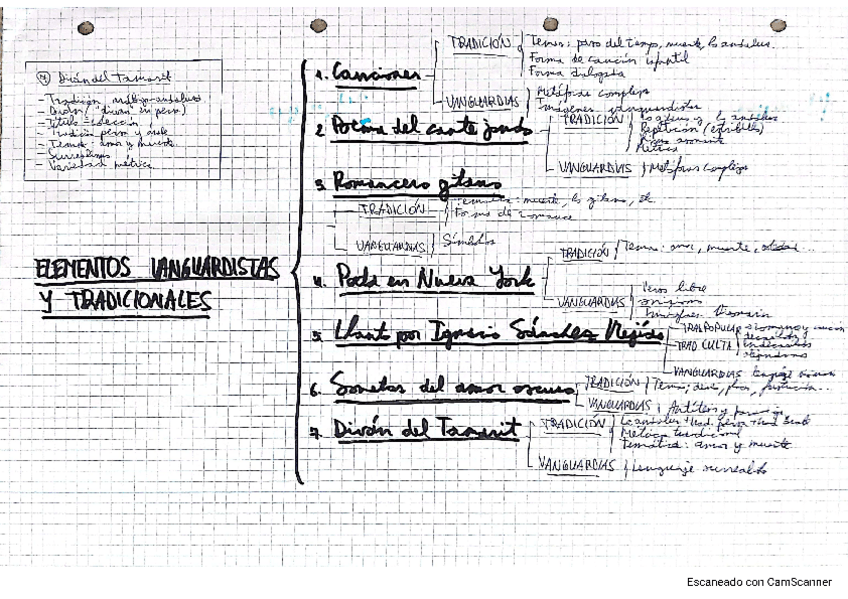 Diván del Tamarit
- Tradición arábigo-andaluza
- Diván
- Título = colección
- Tradición persa y árabe
- Tema: amor y muerte
- Surrealismo
- Variedad métrica
ELEMENTOS VANGUARDISTAS
Y TRADICIONALES
1. Canciones
TRADICIÓN
Temas: paso del tiempo, muerte, lo andaluz...
Forma de canción infantil
Forma dialogada
VANGUARDIAS
Metáforas complejas
Imágenes vanguardistas
2. Poema del cante jondo
TRADICIÓN
lo andaluz
Repetición (estribillos)
Rima asonante
Métrica
VANGUARDIAS
Metáforas complejas
3. Romancero gitano
TRADICIÓN
muerte, lo gitano,
Forma de romance
VANGUARDIAS
Símbolos
4. Poeta en Nueva York
TRADICIÓN
Tema: amor, muerte,
VANGUARDIAS
Verso libre
Imágenes
5. Llanto por Ignacio Sánchez Mejías
TRAD POPULAR
romance y
TRAD CULTA
VANGUARDIAS
6. Sonetos del amor oscuro
TRADICIÓN
Tema:
VANGUARDIAS
Antítesis y
7. Diván del Tamarit
TRADICIÓN
Lo andaluz + trad. persa + trad. árabe
Métrica tradicional
Temática: amor y muerte
VANGUARDIAS
Lenguaje surrealista
Escaneado con CamScanner